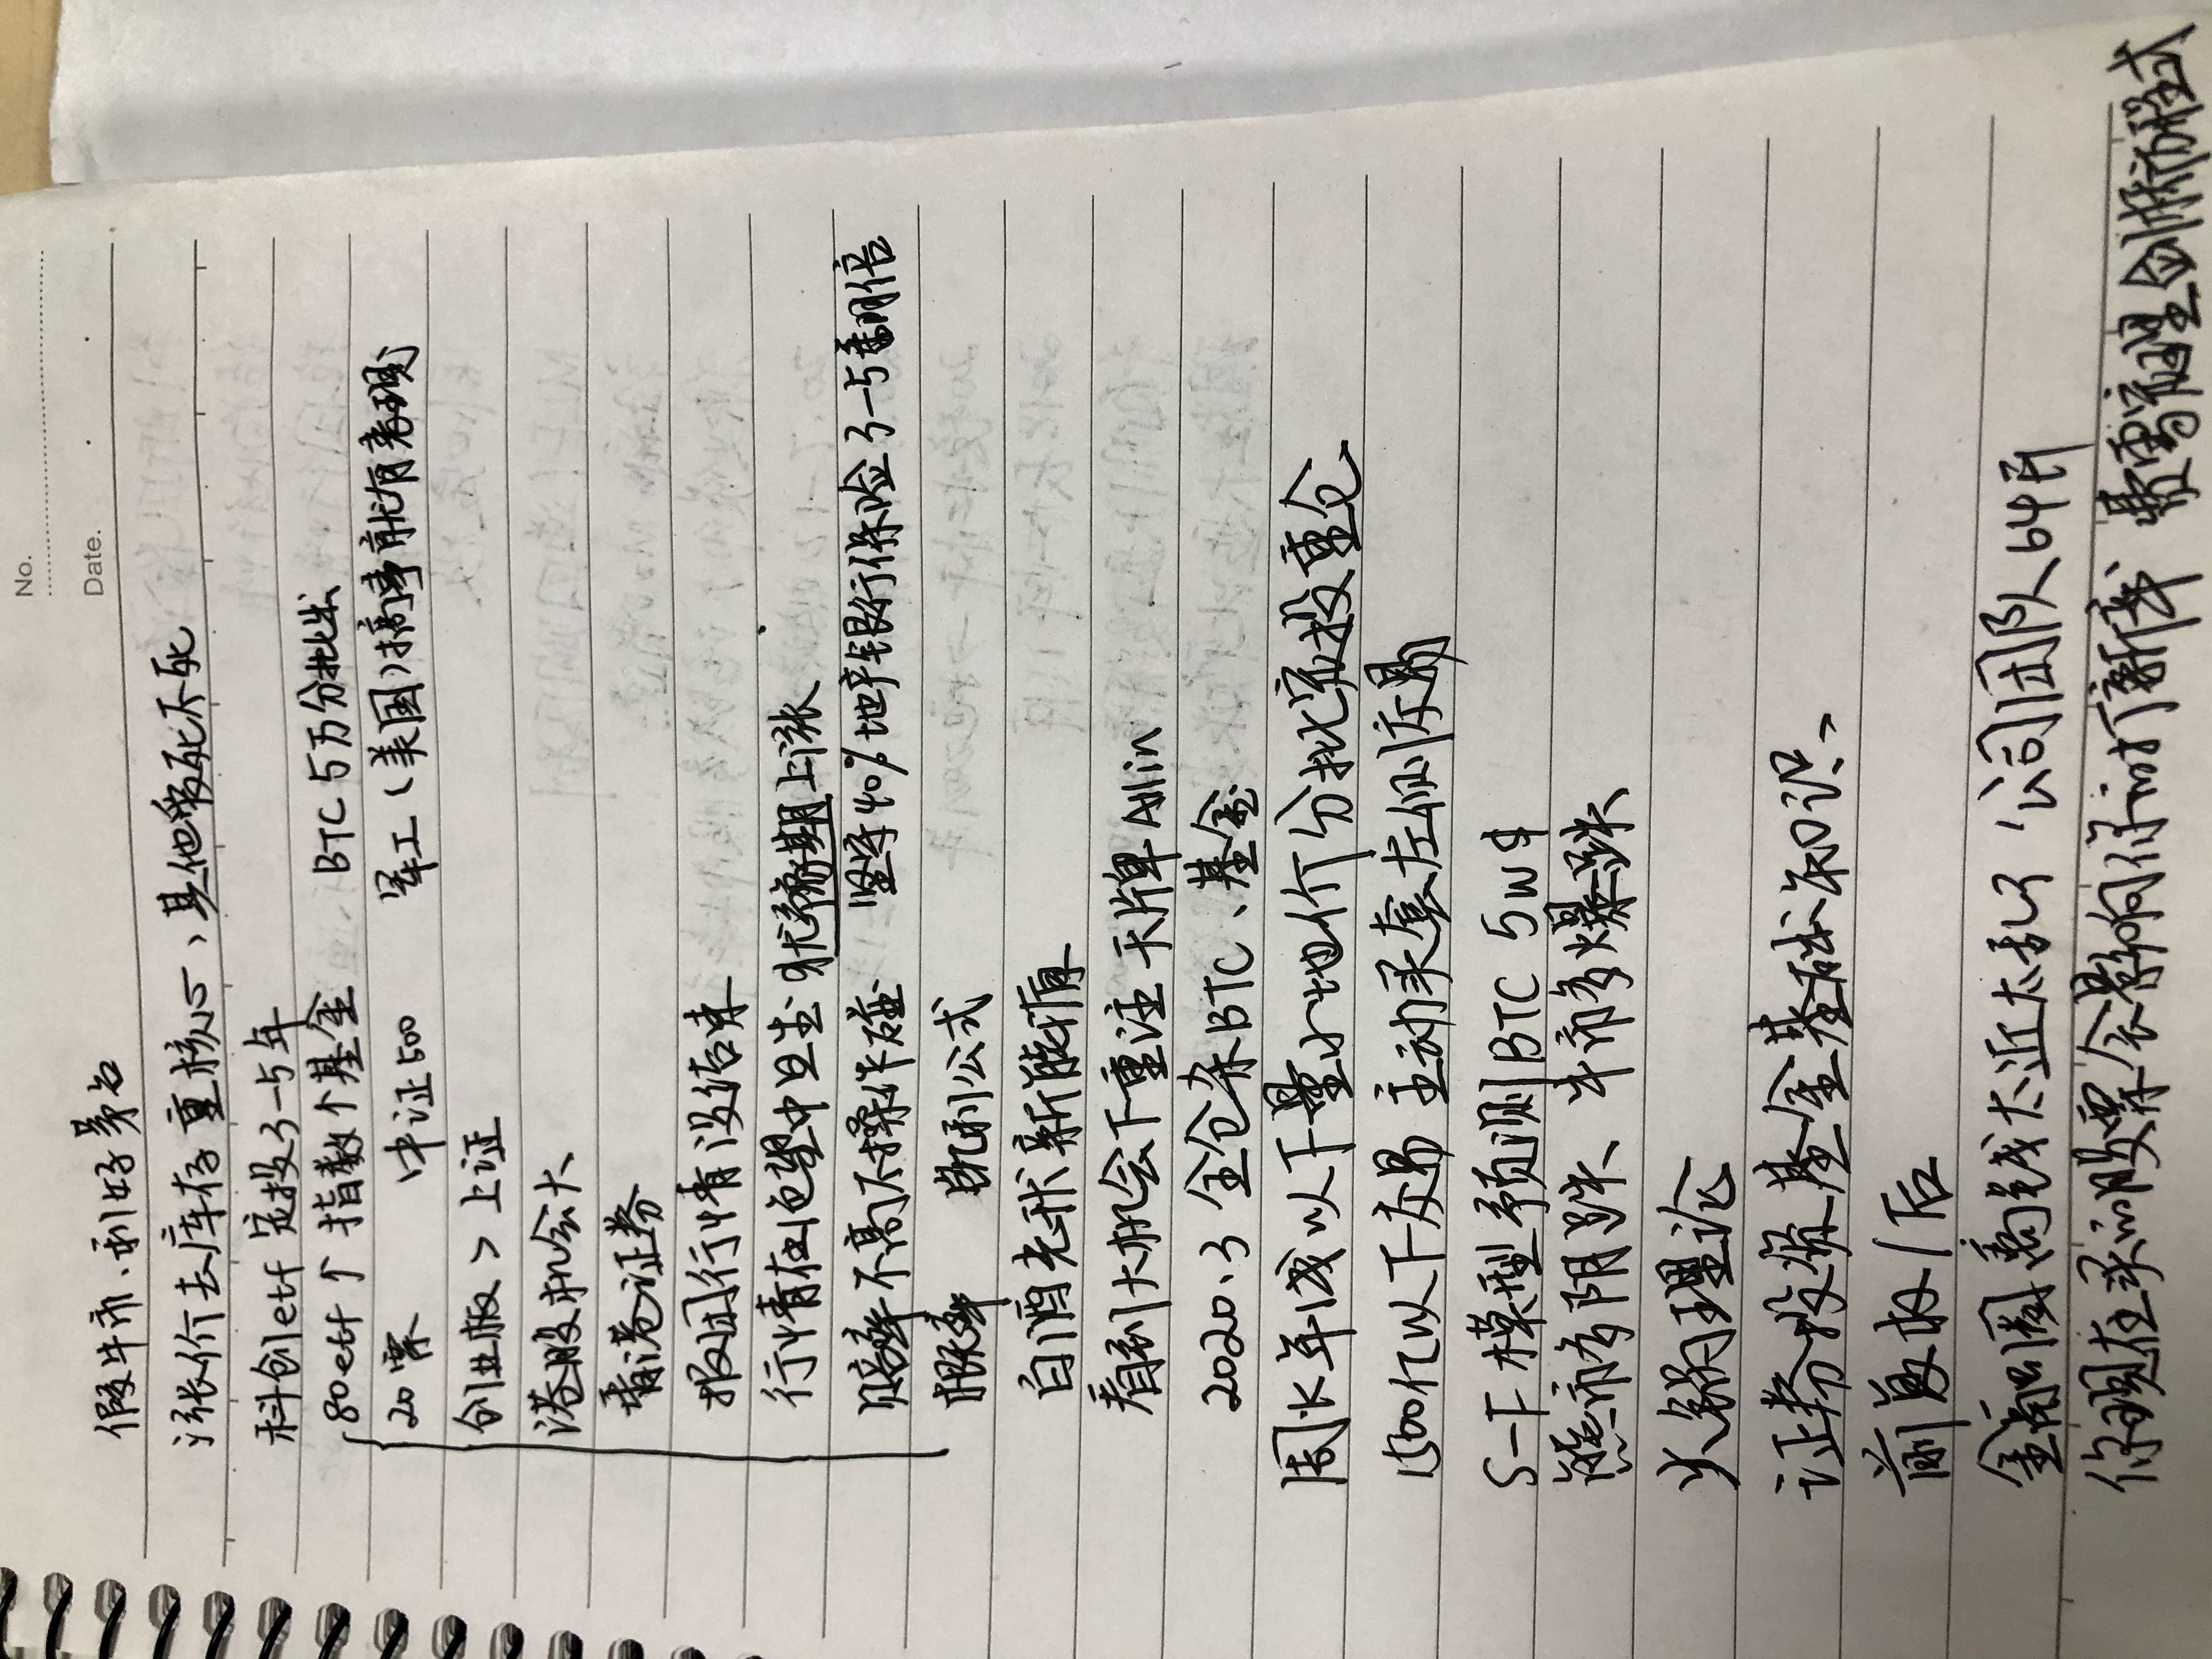 No.
Date.
假牛市、利好茅台
涨价去库存 重核心、其他爱死不死
科创etf 定投3-5年
80etf↑ 指数个基金 BTC 5万分批出
20票 中证500 军工(美国)搞事就有表现
创业板 > 上证
港股机会大
香港证券
报团行情没结束
行情在绝望中旦生 犹豫期上涨
赔率不高不操作碰 坚守40%地产银行保险 3-5翻倍
概率 凯利公式
白酒光伏新能源
看到大机会下重注 天牌 Allin
2020.3 全仓杀BTC、基金
周长年线以下量小地价分批定投重仓
1500亿以下交易 主动买套左侧交易
S-F模型预测BTC 5w$
熊市多阴跌、牛市多爆跌
火锅理论
证券投资基金基础知识、
前复权/后
金融圈离钱太近太乱了 公司团队64开
你现在买的股票会影响你的打新率 费雪定理 剑桥方程式